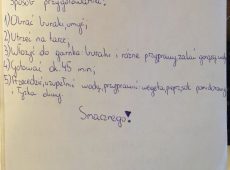 Sposób przygotowania:
1) Obrać buraki, umyć,
2) Utrzeć na tarce,
3) Włożyć do garnka buraki i różne przyprawy, zalać gorącą wodą,
4) Gotować ok. 45 min,
5) Przecedzić, uzupełnić wodą, przyprawić vegetą, pieprzem
i łyżką oliwy.
Smacznego!